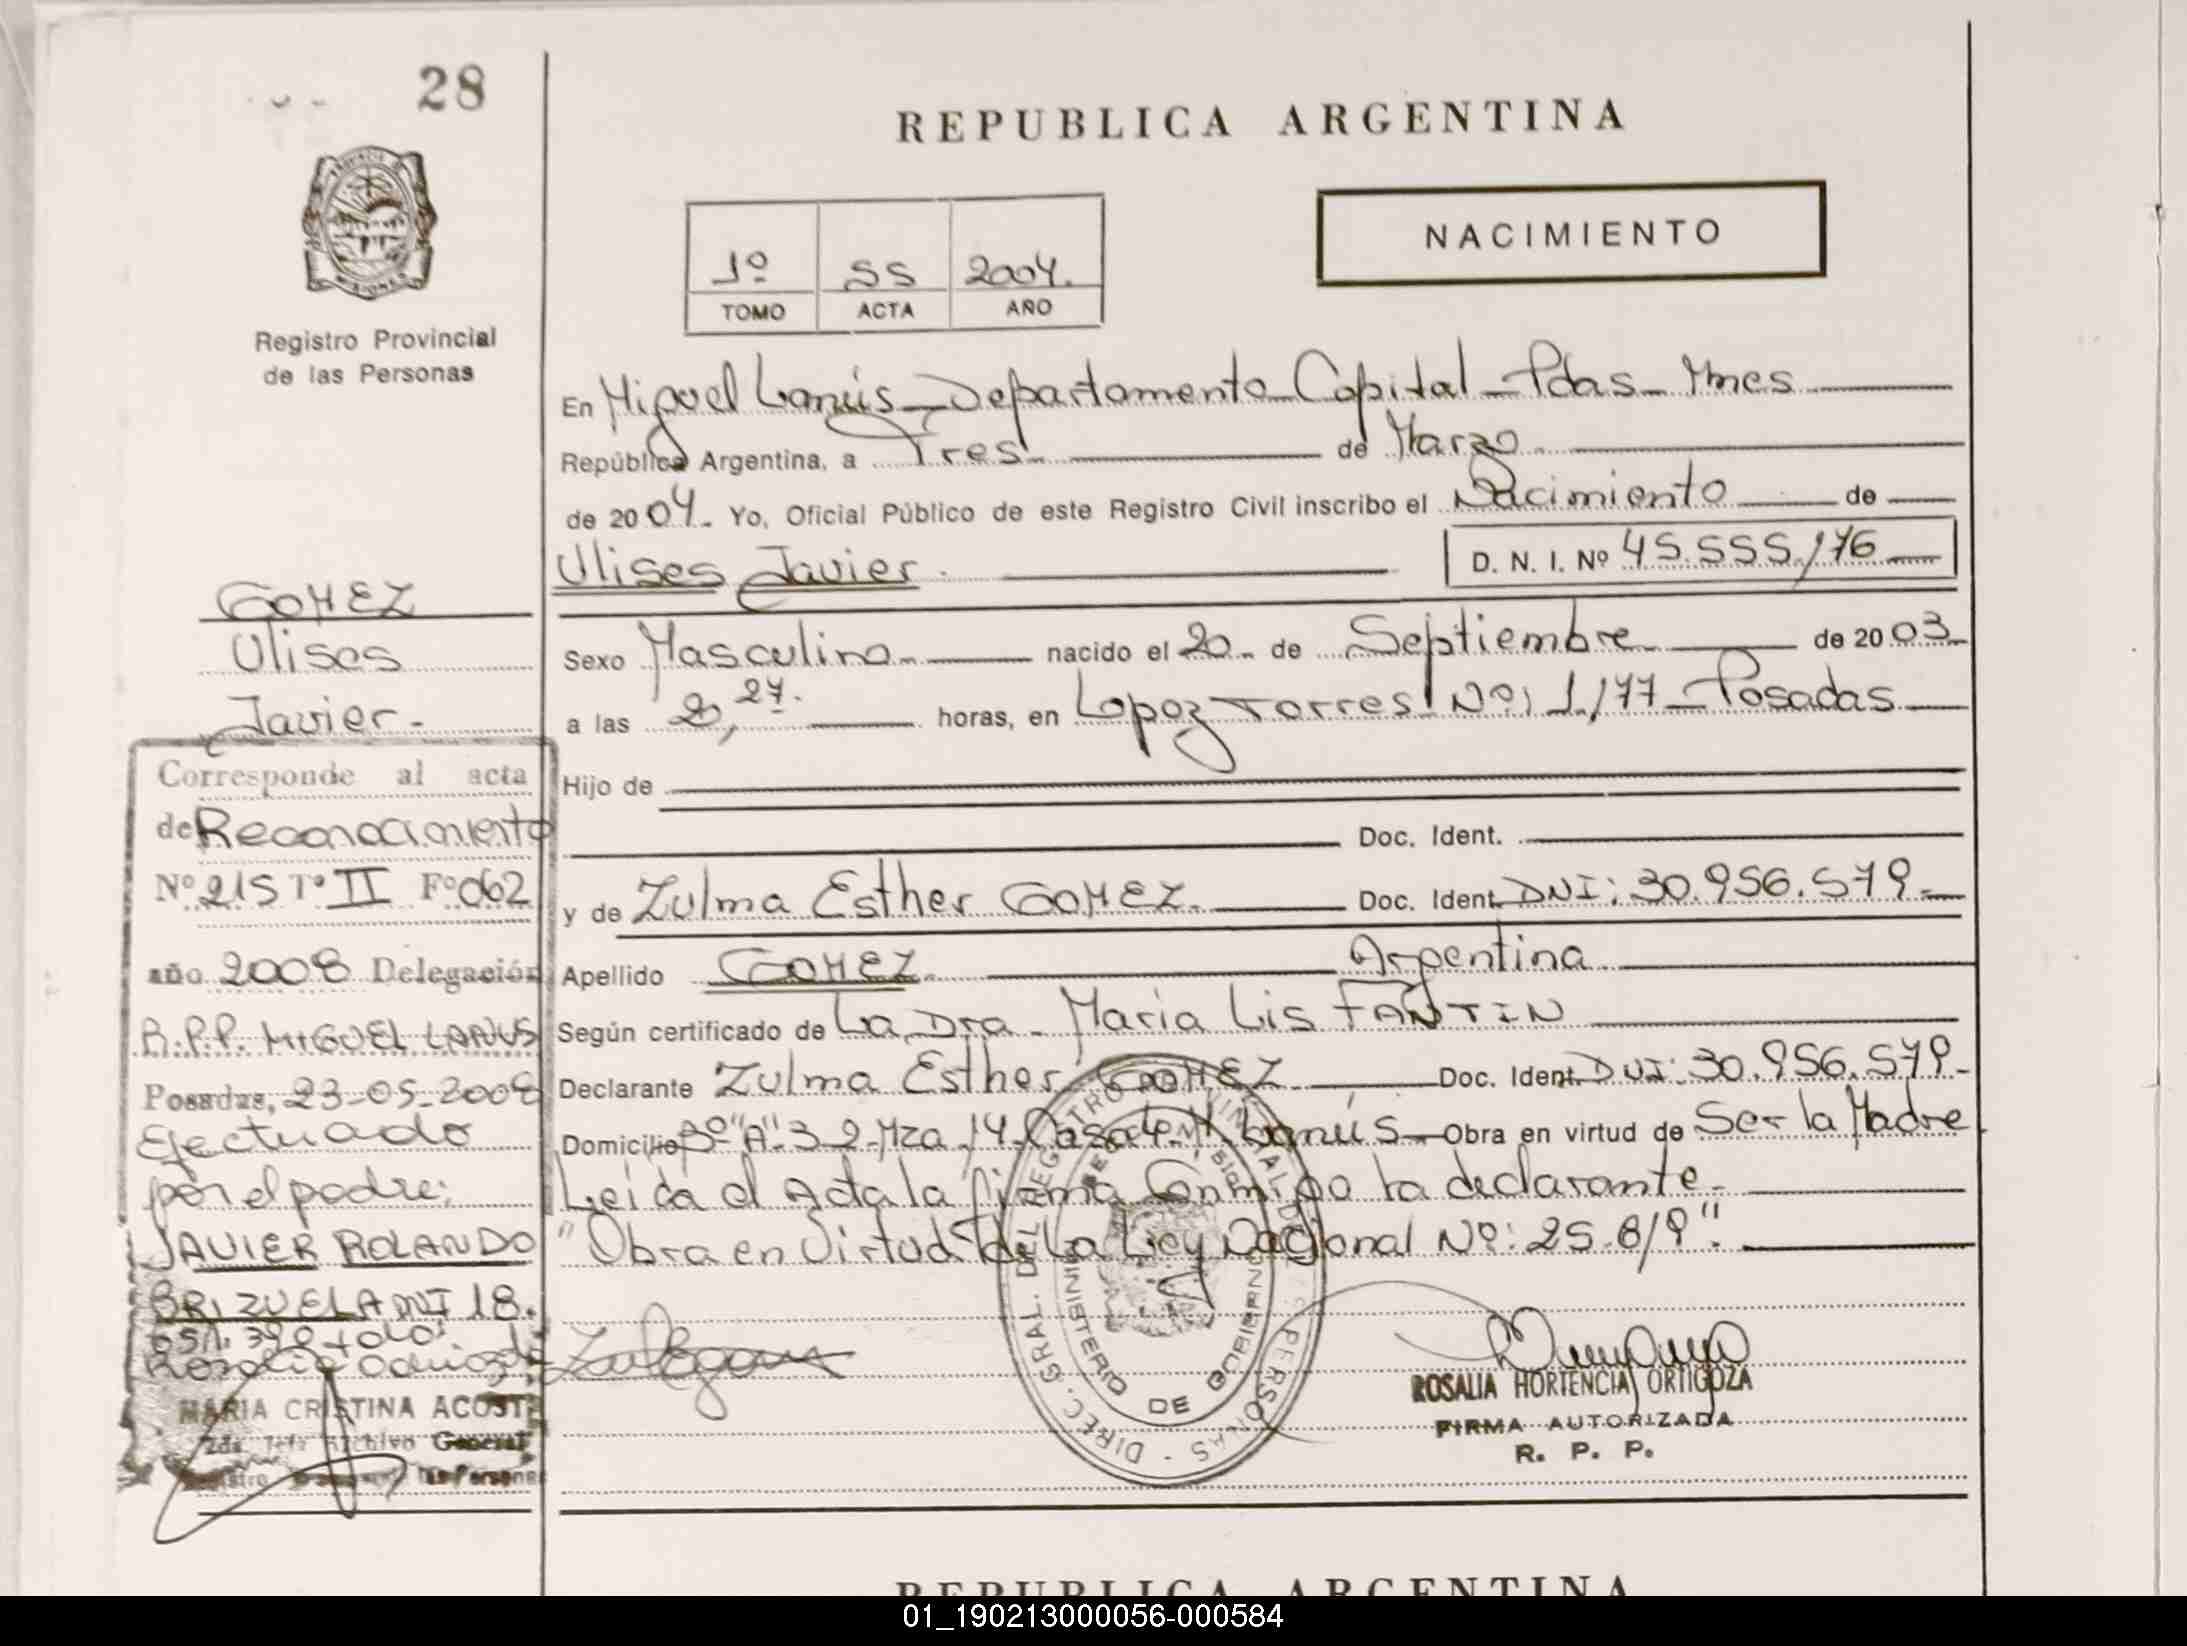 28
REPUBLICA ARGENTINA
NACIMIENTO
1º SS 2004.
TOMO ACTA AÑO
Registro Provincial
de las Personas
En Miguel Lanús - Departamento Capital - Pdas - Mnes
República Argentina, a Tres de Marzo
de 2004. Yo, Oficial Público de este Registro Civil inscribo el Nacimiento de
Ulises Javier. D. N. I. Nº 45.555.176
Sexo Masculino nacido el 20 de Septiembre de 2003
a las 20,27. horas, en Lopez Torres Nº: 1.177 - Posadas
Hijo de
Doc. Ident.
y de Zulma Esther GOMEZ. Doc. Ident. DNI: 30.956.579
Apellido GOMEZ Argentina
Según certificado de La Dra. Maria Lis FANTIN
Declarante Zulma Esther GOMEZ Doc. Ident. DNI: 30.956.579
Domicilio Bº "A" 3 2 Mza 14 Casa 4 M. Lanús Obra en virtud de Ser la Madre
Leída el Acta la firma Conmigo la declarante
"Obra en Virtud de La Ley Nacional Nº: 25.819".
ROSALIA HORTENCIA ORTIGOZA
FIRMA AUTORIZADA
R. P. P.
GOMEZ
Ulises
Javier
Corresponde al acta
de Reconocimiento
Nº 215 Tº II Fº 062
año 2008 Delegación
R.P.P. MIGUEL LANUS
Posadas, 23-05-2008
Efectuado
por el padre:
JAVIER ROLANDO
BRIZUELA DNI 18.
MARIA CRISTINA ACOSTA
2da. Jefe Archivo General
Registro las Personas
DIREC. GRAL. DEL REGISTRO PROVINCIAL DE PERSONAS
MINISTERIO DE GOBIERNO
REPUBLICA ARGENTINA
01_190213000056-000584